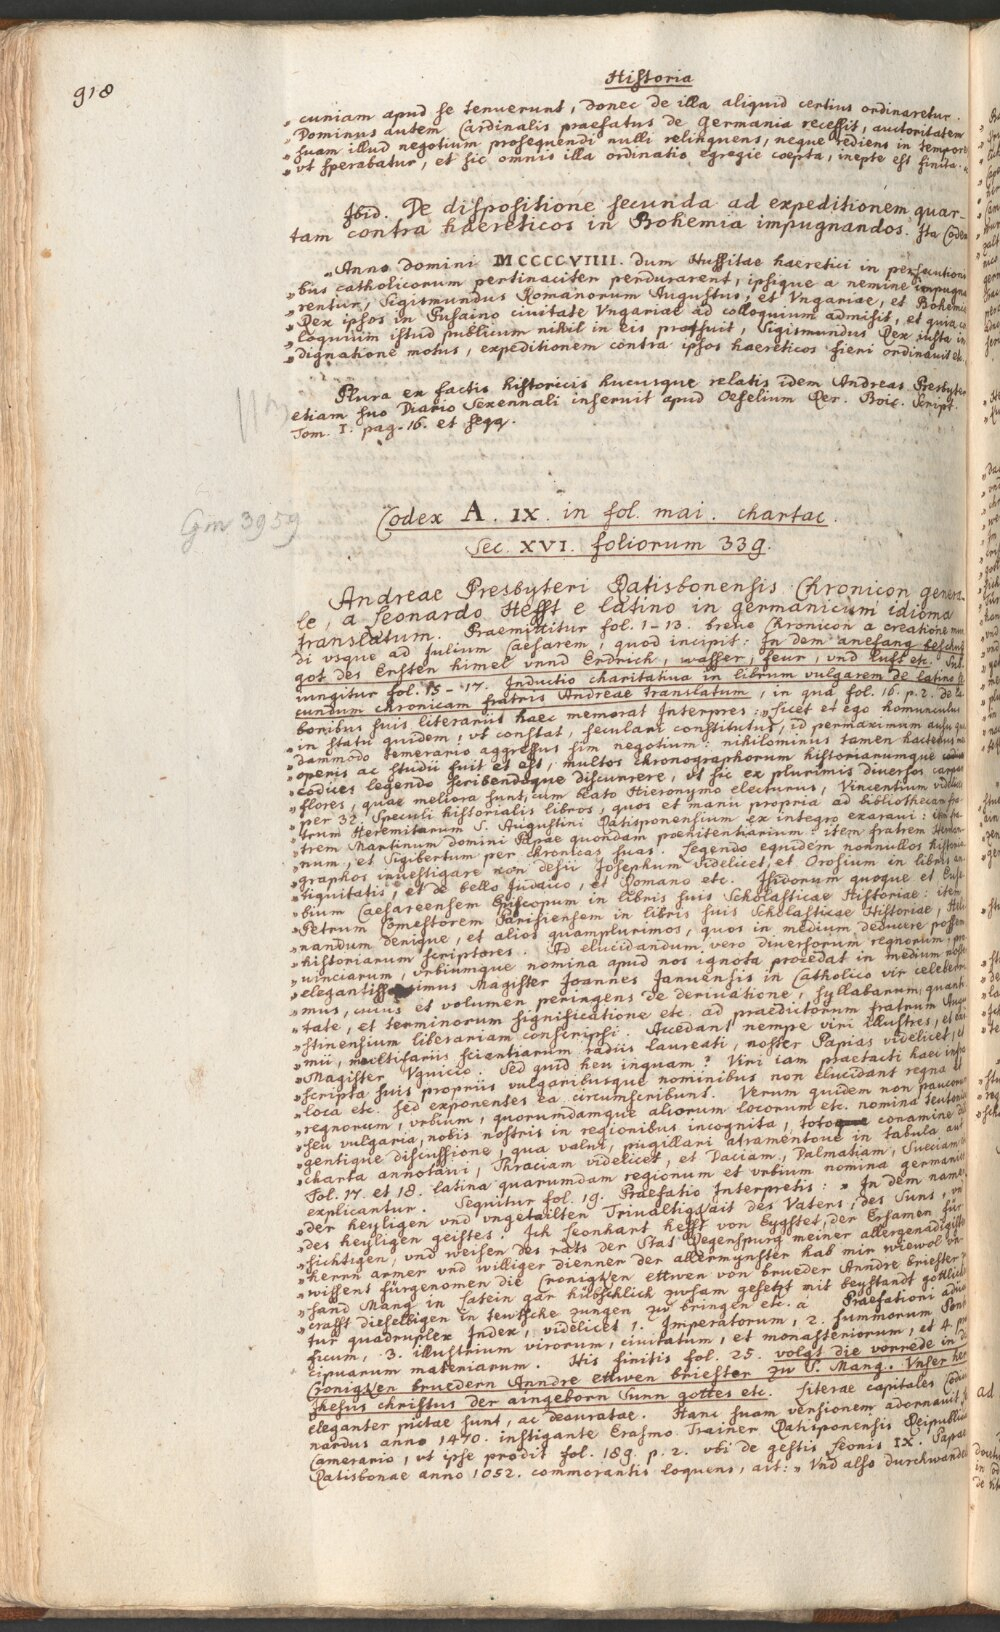 918
Historia
„ cuniam apud se tenuerunt, donec de illa aliquid certius ordinaretur.
„ Dominus autem Cardinalis praefatus de Germania recessit, auctoritatem
„ suam illud negotium prosequendi nulli relinquens, neque rediens in tempore
„ vt sperabatur, et sic omnis illa ordinatio egregie coepta, inepte est finita. „
Ibid. De dispositione secunda ad expeditionem quar-
tam contra haereticos in Bohemia impugnandos. Ita Codex
„ Anno domini MCCCCVIIII. dum Hussitae haeretici in persecution
„ bus catholicorum pertinaciter perdurarent, ipsique a nemine impugna
„ rentur, Sigismundus Romanorum Augustus, et Vngariae, et Bohemiae
„ Rex ipsos in Pusaino ciuitate Vngariae ad colloquium admisit, et quia co
„ loquium istud publicum nihil in eis profuit, Sigismundus Rex iusta in
„ dignatione motus, expeditionem contra ipsos haereticos fieri ordinauit etc.
Plura ex factis historicis hucusque relatis idem Andreas Presbyter
etiam suo Diario Sexennali inseruit apud Oefelium Rer. Boic. Script.
Tom. I. pag. 16. et seqq.
Cgm 3959
Codex A. IX. in fol. mai. chartac.
Sec. XVI. foliorum 339.
Andreae Presbyteri Ratisbonensis Chronicon genera-
le, a Leonardo Hefft e latino in germanicum idioma
translatum. Praemittitur fol. 1-13. breue Chronicon a creatione mun
di vsque ad Julium Caesarem, quod incipit: In dem anefang beschuf
got des Ersten himel vnnd Erdrich, wasser, feur, vnd luft etc. Sub
iungitur fol. 15-17. Inductio charitatiua in librum vulgarem de latino se
cundum chronicam fratris Andreae translatum, in qua fol. 16. p. 2. de la
boribus suis literariis haec memorat Interpres: „ Licet et ego homunculus
„ in statu quidem, vt constat, seculari constitutus, id permaximum ausu quo
„ dammodo temerario aggressus sim negotium: nihilominus tamen hactenus me
„ operis ac studii fuit et est, multos chronographorum historiarumque
„ codices legendo scribendoque discurrere, et sic ex plurimis diuersos carpere
„ flores, quae meliora sunt, cum beato Hieronymo electurus, Vincentium videlicet
„ per 32. Speculi historialis libros, quos et manu propria ad bibliothecam fra
„ trum Heremitarum S. Augustini Ratisponensium ex integro exaraui: item fra
„ trem Martinum domini Papae quondam poenitentiarium: item fratrem Hermon
„ num, et Sigibertum per chronicas suas. Legendo equidem nonnullos historio
„ graphos inuestigare non desii Josephum videlicet, et Orosium in libris an
„ tiquitatis, et de bello Judaico, et Romano etc. Isidorum quoque et Euse
„ bium Caesareensem Episcopum in libris suis Scholasticae Historiae: item
„ Petrum Comestorem Parisiensem in libris suis Scholasticae Historiae, Heli
„ nandum denique, et alios quamplurimos, quos in medium deducere possem
„ historiarum scriptores. Ad elucidandum vero diuersorum regnorum, pro
„ uinciarum, vrbiumque nomina apud nos ignota procedat in medium noster
„ elegantissimus Magister Joannes Januensis in Catholico vir celeberri
„ mus, cuius et volumen peringens de deriuatione, syllabarum quanti
„ tate, et terminorum significatione etc. ad praedictorum fratrum Augu
„ stinensium liberariam conscripsi. Accedant nempe viri illustres, et exi
„ mii, multifariis scientiarum radiis laureati, noster Papias videlicet, et
„ Magister Vguicio. Sed quid heu inquam? Viri iam praetacti haec in sua
„ scripta suis propriis vulgaribusque nominibus non elucidant regna et
„ loca etc. sed exponentes ea circumscribunt. Verum quidem non paucorum
„ regnorum, vrbium, quorumdamque aliorum locorum etc. nomina teutonica
„ seu vulgaria, nobis nostris in regionibus incognita, toto conamine dili
„ gentique discussione, qua valui, pugillari atramentoue in tabula aut
„ charta annotaui, Thraciam videlicet, et Daciam, Dalmatiam, Sueciam etc.
Fol. 17. et 18. latina quarumdam regionum et vrbium nomina germanice
explicantur. Sequitur fol. 19. Praefatio Interpretis: „ In dem namen
„ der heyligen vnd vngetailten Triualtigkait des Vaters, des Suns, vnd
„ des heyligen geistes. Ich Leonhart hefft von Eygstet, der Ersamen für
„ sichtigen, vnd weisen des rats der Stat Regenspurg meiner allergenadigisten
„ herrn armer vnd williger dienner der allermynster hab mir wiewol vn
„ wissent fürgenomen die Cronigken ettwen von brueder Anndre briester
„ sand Mang in latein gar hubschlich zusam gesetzt mit beystandt gotlicher
„ crafft dieselbigen in teutsche zungen zu bringen etc. „ Praefationi adiici
tur quadruplex Index, videlicet 1. Imperatorum, 2. summorum Ponti
ficum, 3. illustrium virorum, ciuitatum, et monasteriorum, et 4. prae
cipuarum materiarum. His finitis fol. 25. volgt die vorrede in die
Cronigken bruedern Anndre ettwen briester zu S. Mang. Vnser herr
Jhesus christus der aingeborn Sunn gottes etc. Literae capitales Codicis
eleganter pictae sunt, ac deauratae. Hanc suam versionem adornauit Leo
nardus anno 1470. instigante Erasmo Trainer Ratisponensis Reipublicae
Camerario, vt ipse prodit fol. 189. p. 2. vbi de gestis Leonis IX. Papae
Ratisbonae anno 1052. commorantis loquens, ait: „ Vnd also durchwandelt